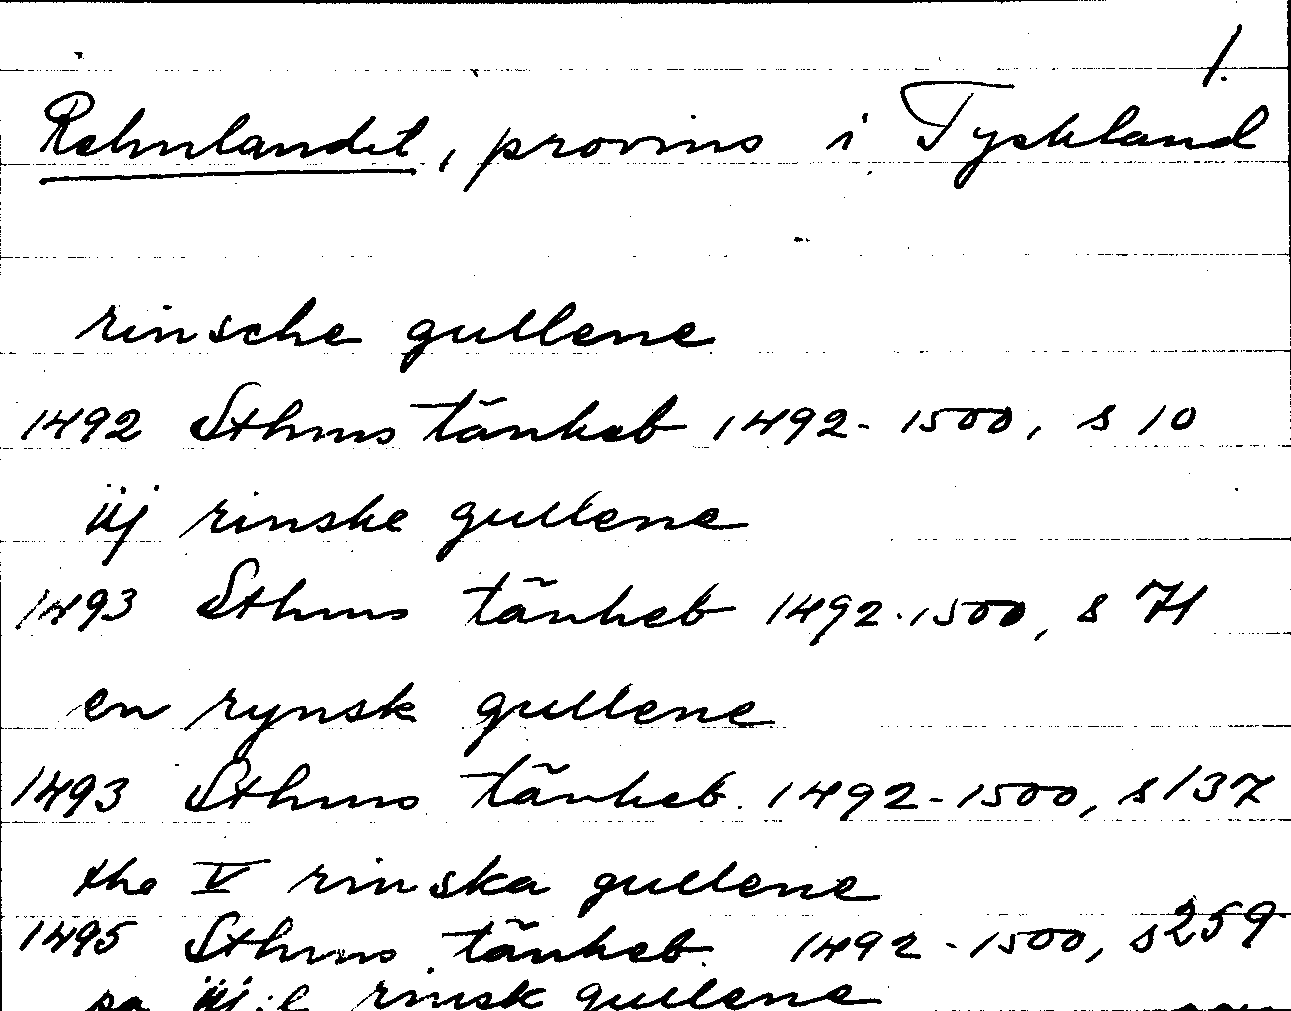 1.
Rehnlandet, provins i Tyskland
rinsche gullene
1492 Sthms tänkeb 1492-1500, s 10
iij rinske gullene
1493 Sthms tänkeb 1492-1500, s 71
en rynsk gullene
1493 Sthms tänkeb. 1492-1500, s 137
the V rinska gullene
1495 Sthms tänkeb. 1492-1500, s 259
rinsk gullene